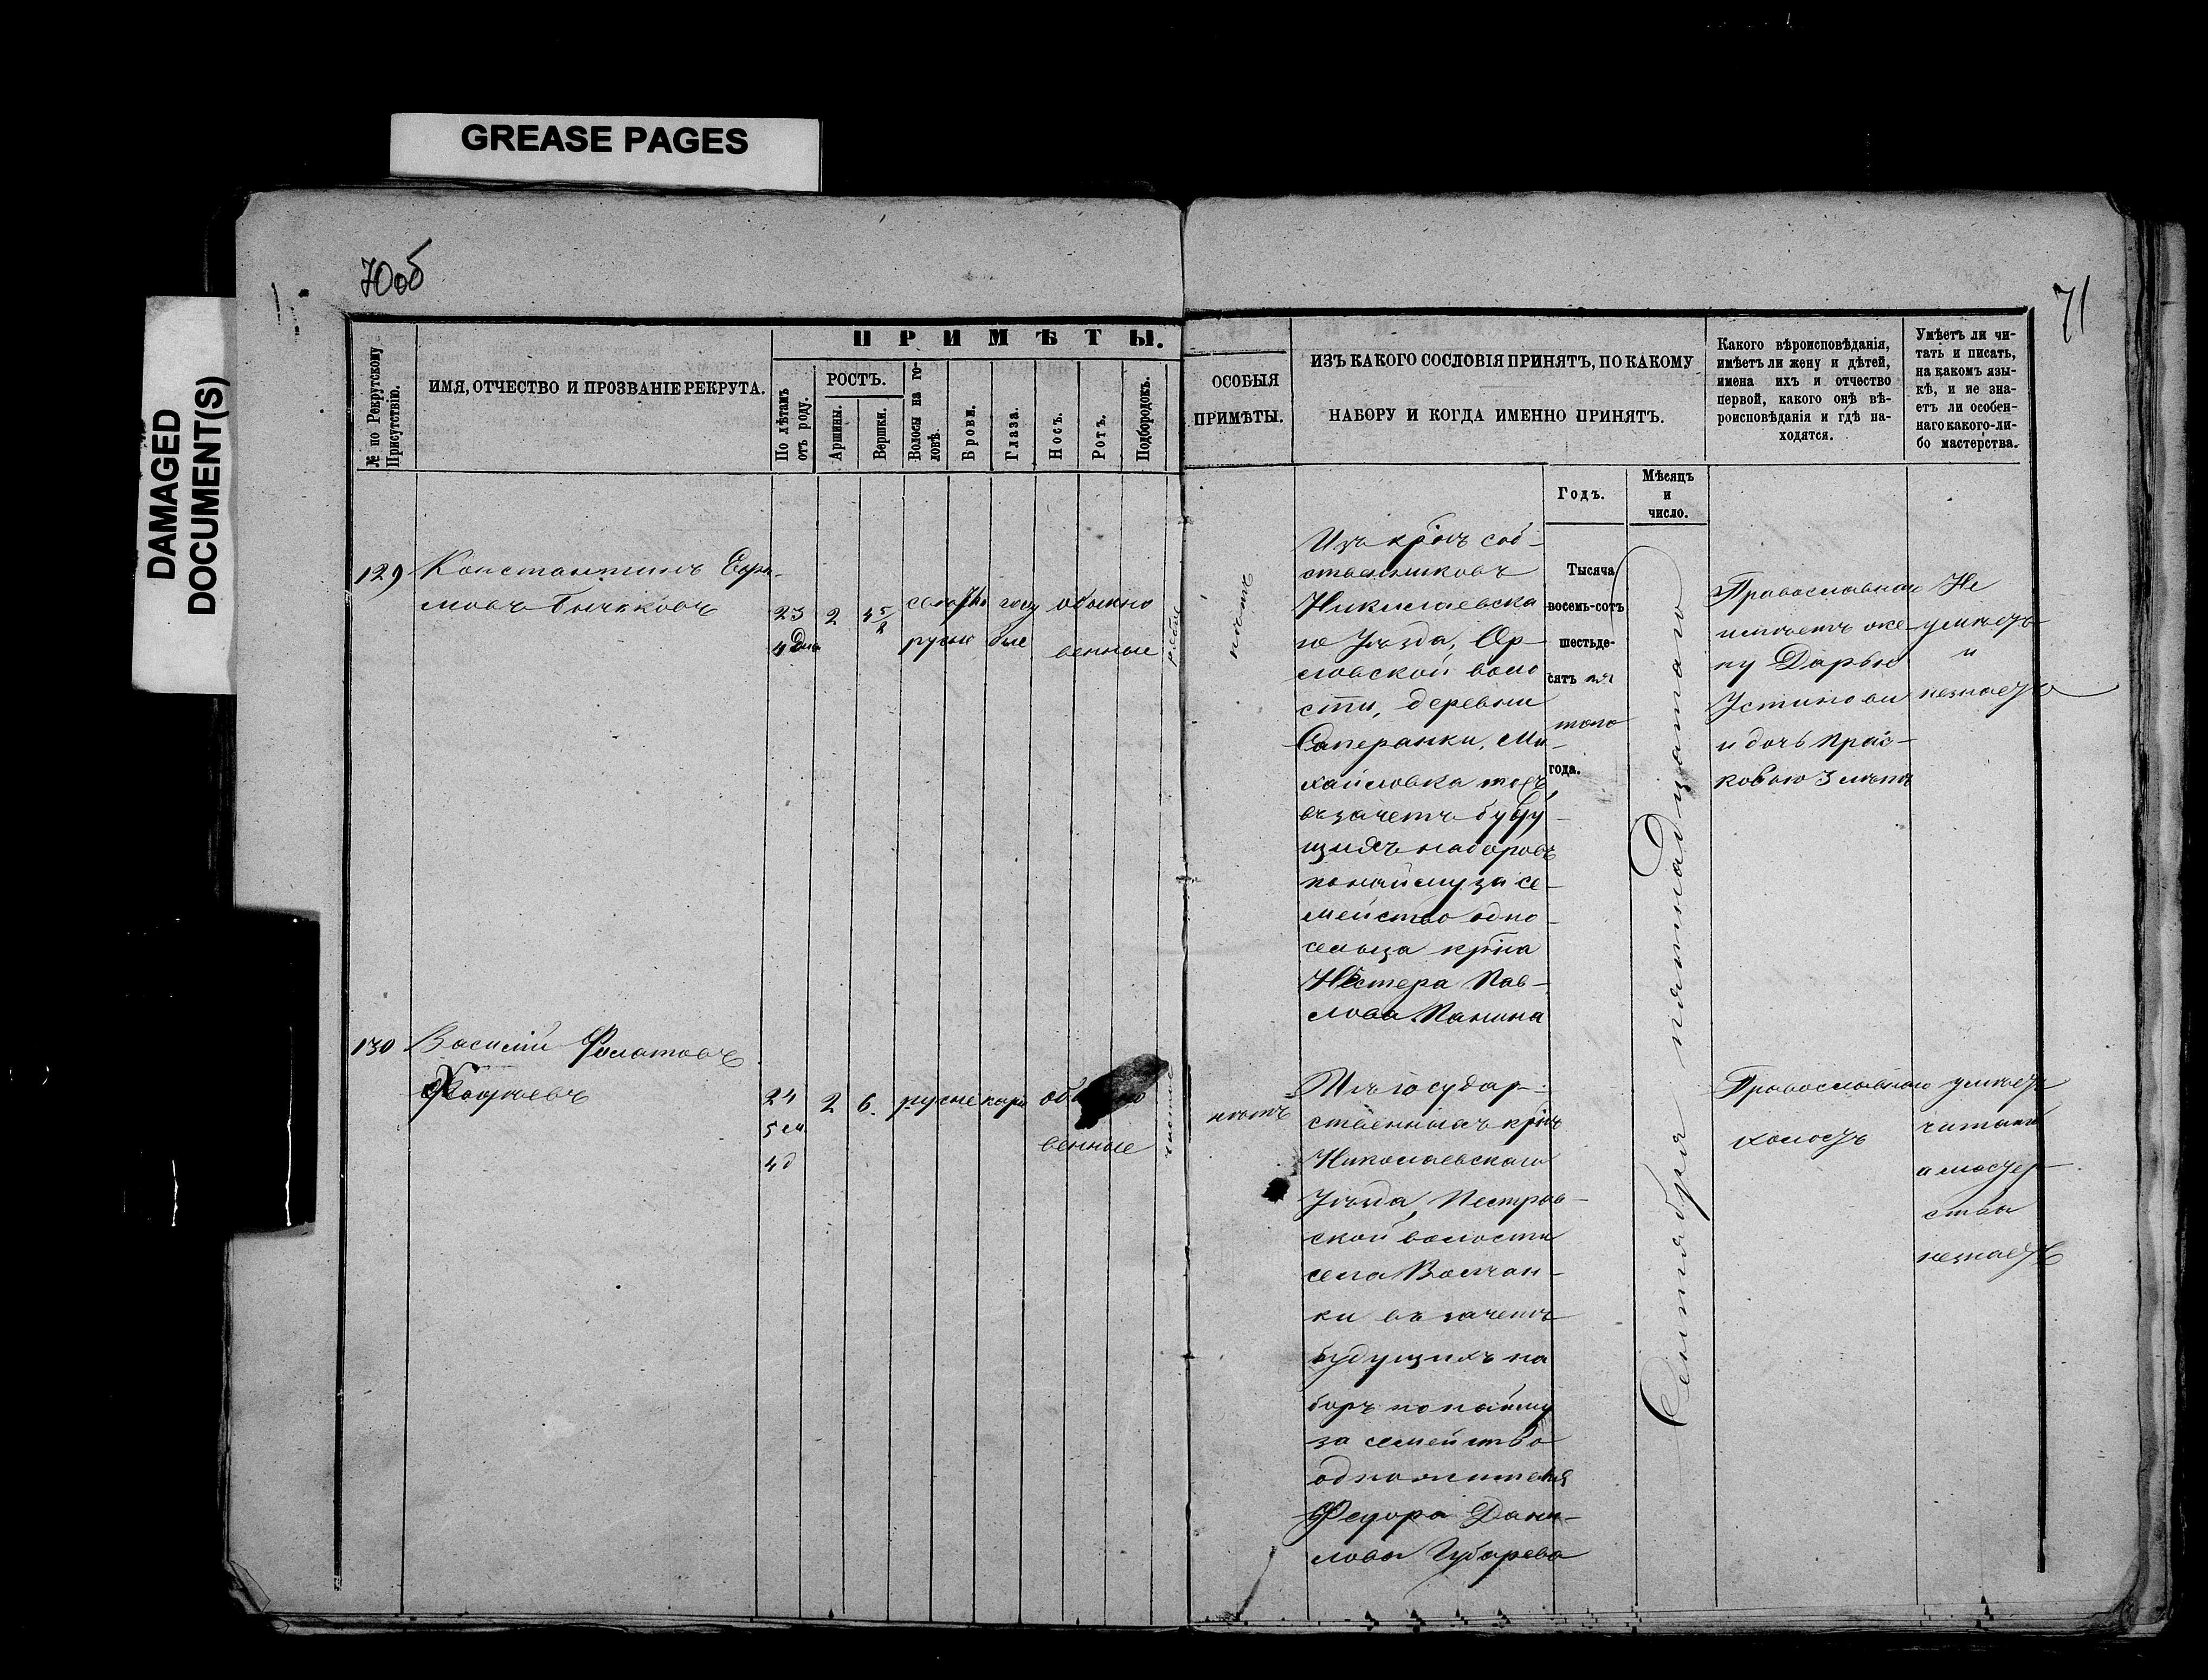 GREASE PAGES
DAMAGED
DOCUMENT(S)
70об
71
№ по Рекрутскому Присутствію.
ИМЯ, ОТЧЕСТВО И ПРОЗВАНІЕ РЕКРУТА.
ПРИМѢТЫ.
По лѣтамъ отъ роду.
РОСТЪ.
Аршины.
Вершки.
Волосы на головѣ.
Брови.
Глаза.
Носъ.
Ротъ.
Подбородокъ.
ОСОБЫЯ
ПРИМѢТЫ.
ИЗЪ КАКОГО СОСЛОВІЯ ПРИНЯТЪ, ПО КАКОМУ
НАБОРУ И КОГДА ИМЕННО ПРИНЯТЪ.
Годъ.
Мѣсяцъ
и
число.
Какого вѣроисповѣданія,
имѣетъ ли жену и дѣтей,
имена ихъ и отчество
первой, какого онѣ вѣ-
роисповѣданія и гдѣ на-
ходятся.
Умѣетъ ли чи-
тать и писать,
на какомъ язы-
кѣ, и не зна-
етъ ли особен-
наго какого-ли-
бо мастерства.
129
Константинъ Ефи-
мовъ Бычковъ
23
4 дня
2
русы
голу
бые
обыкно
венные
нѣтъ
Изъ крѣнъ соб-
ственниковъ
Николаевска
го Уѣзда, Ор-
ловской воло
сти, деревни
Сперанки, Ми-
хайловка тожъ,
въ зачетъ буду-
щихъ наборовъ
по найму за се-
мейство одно-
сельца крѣна
Нестера Пав-
лова Панина
Тысяча
восемь-сотъ
шестьде-
сятъ пя
таго
года.
Сентября пятнадцатаго
Православнаго
имѣетъ же-
ну Дарью
Устинови
и дочь Прас-
ковью 3 лѣтъ
Не
умѣетъ
и
незнаетъ
130
Василій Филатовъ
24
5 м
4 д
2
6.
русые
кари
венные
чистые
нѣтъ
Изъ государ-
ственныхъ крѣнъ
Николаевскаго
Уѣзда, Пестрав-
ской волости
села Волчан-
ки въ зачетъ
будущихъ на
боръ по найму
за семейство
одножителя
Федора Дани-
лова Губарева
Православнаго
холостъ
умѣетъ
читать
а мастер-
ства
незнаетъ